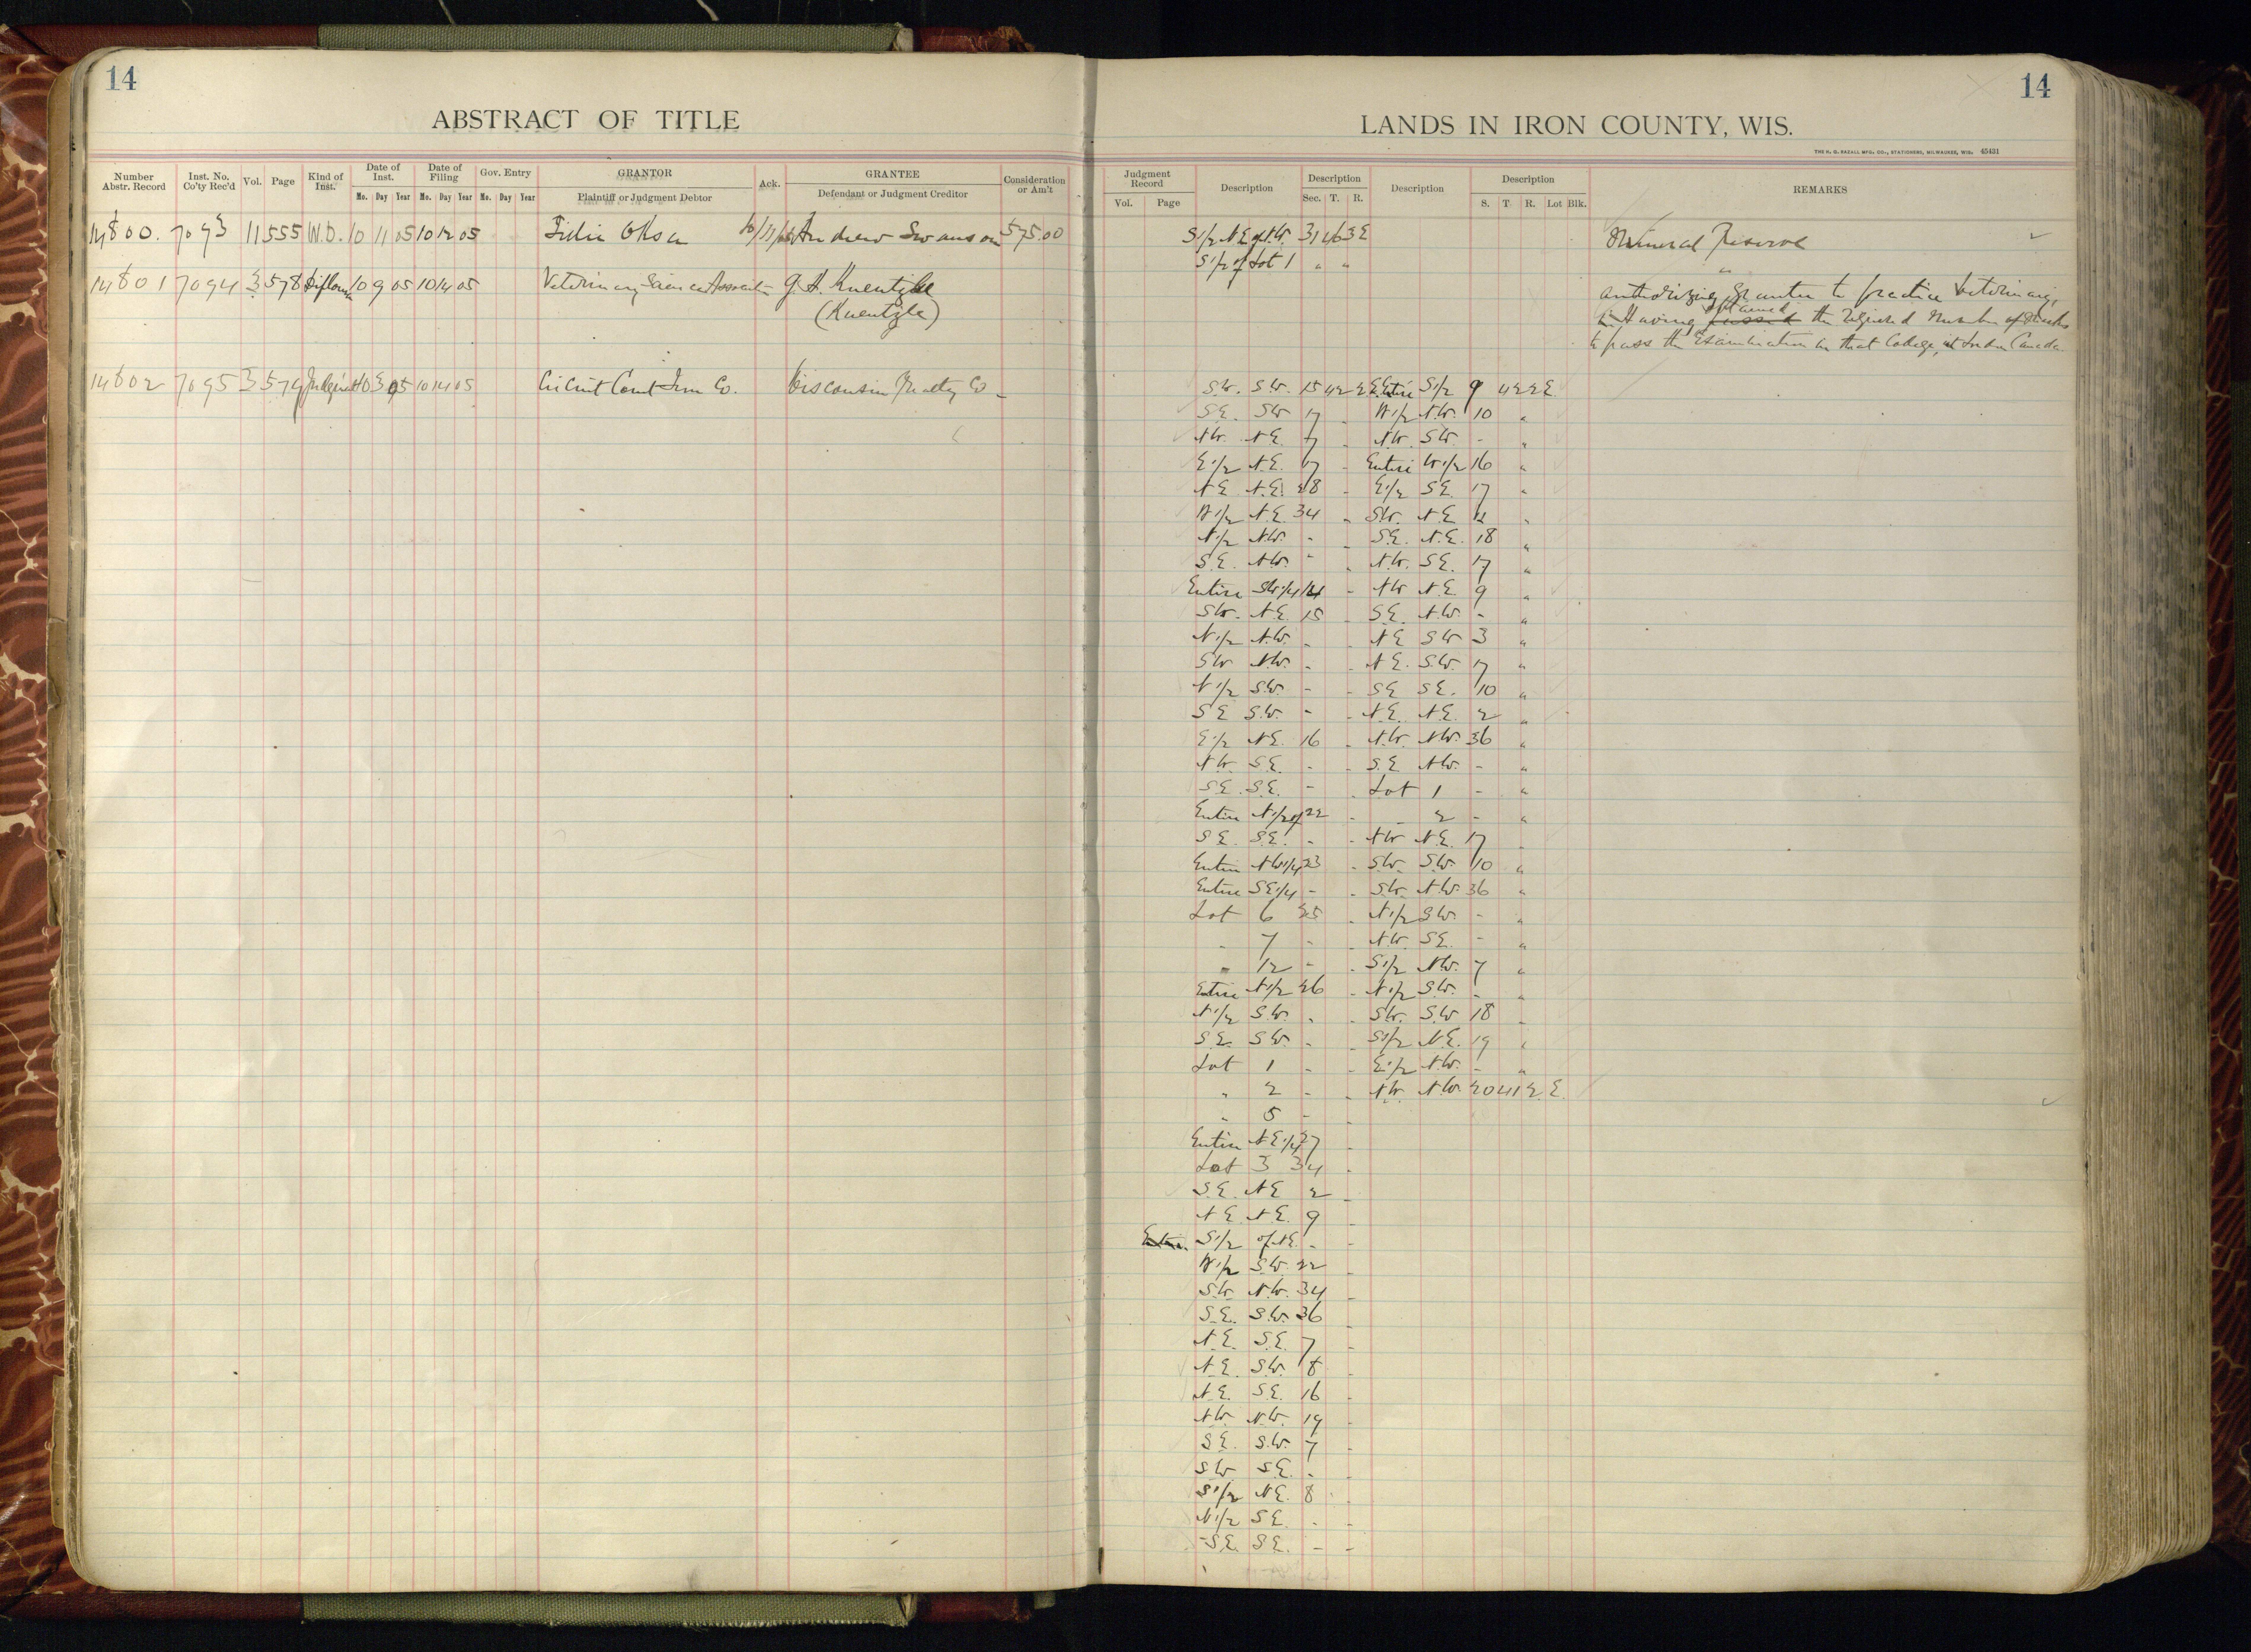 14
ABSTRACT OF TITLE
Number Abstr. Record Inst. No. Co'ty Rec'd Vol. Page Kind of Inst. Date of Inst. Date of Filing Gov. Entry GRANTOR Ack. GRANTEE Consideration or Am't
Mo. Day Year Mo. Day Year Mo. Day Year Plaintiff or Judgment Debtor Defendant or Judgment Creditor
14800. 7093 11 555 W.D. 10 11 05 10 12 05 Andrew Swanson 575.00
14801 7094 3 578 Diploma 10 9 05 10 14 05 Veterinary Science Association Kuentzle
(Kuentzle)
14802 7095 3 579 10 3 05 10 14 05 Circuit Court Iron Co. Wisconsin Realty Co
14
LANDS IN IRON COUNTY, WIS.
THE H. G. RAZALL MFG. CO., STATIONERS, MILWAUKEE, WIS. 45431
Judgment Record Description Description Description Description REMARKS
Vol. Page Sec. T. R. S. T. R. Lot Blk.
S1/2 N.E. of N.W. 31 46 3E Mineral Reserve
S1/2 of Lot 1 " " "
authorizing Grantee to practice veterinary,
Having obtained the Required Number of Marks
to pass the Examination in that College, at London Canada
S.W. S.W. 15 42 2E Entire S1/2 9 42 2E
S.E. S.W. 17 - W1/2 N.W. 10 "
N.W. N.E. 7 - N.W. S.W. - "
E1/2 N.E. 17 - Entire W1/2 16 "
N.E. N.E. 28 - E1/2 S.E. 17 "
W1/2 N.E. 34 - S.W. N.E. 12 "
N1/2 N.W. - - S.E. N.E. 18 "
S.E. N.W. - - N.W. S.E. 17 "
Entire SW1/4 14 - N.W. N.E. 9 "
S.W. N.E. 15 - S.E. N.W. - "
N1/2 N.W. - - N.E. S.W. 3 "
S.W. N.W. - - N.E. S.W. 17 "
N1/2 S.W. - - S.E. S.E. 10 "
S.E. S.W. - - N.E. N.E. 2 "
E1/2 N.E. 16 - N.W. N.W. 36 "
N.W. S.E. - - S.E. N.W. - "
S.E. S.E. - - Lot 1 - "
Entire N1/2 of 22 - - 2 - "
S.E. S.E. - - N.W. N.E. 17 -
Entire NW1/4 23 - S.W. S.W. 10 "
Entire SE1/4 - - S.W. N.W. 36 "
Lot 6 25 - N1/2 S.W. - "
- 7 - - N.W. S.E. - "
" 12 - - S1/2 N.W. 7 "
Entire N1/2 26 - N1/2 S.W. - "
N1/2 S.W. - - S.W. S.W. 18 -
S.E. S.W. - - S1/2 N.E. 19 "
Lot 1 - - E1/2 N.W. - "
" 2 - - N.W. N.W. 20 41 2E
- 5 - -
Entire NE1/4 27 -
Lot 3 34 -
S.E. N.E. 2 -
N.E. N.E. 9 -
Entire S1/2 of N.E. - -
W1/2 S.W. 22 -
S.W. N.W. 34 -
S.E. S.W. 36 -
N.E. S.E. 7 -
N.E. S.W. 8 -
N.E. S.E. 16 -
N.W. N.W. 19 -
S.E. S.W. 7 -
S.W. S.E. - -
S1/2 N.E. 8 -
N1/2 S.E. - -
S.E. S.E. - -